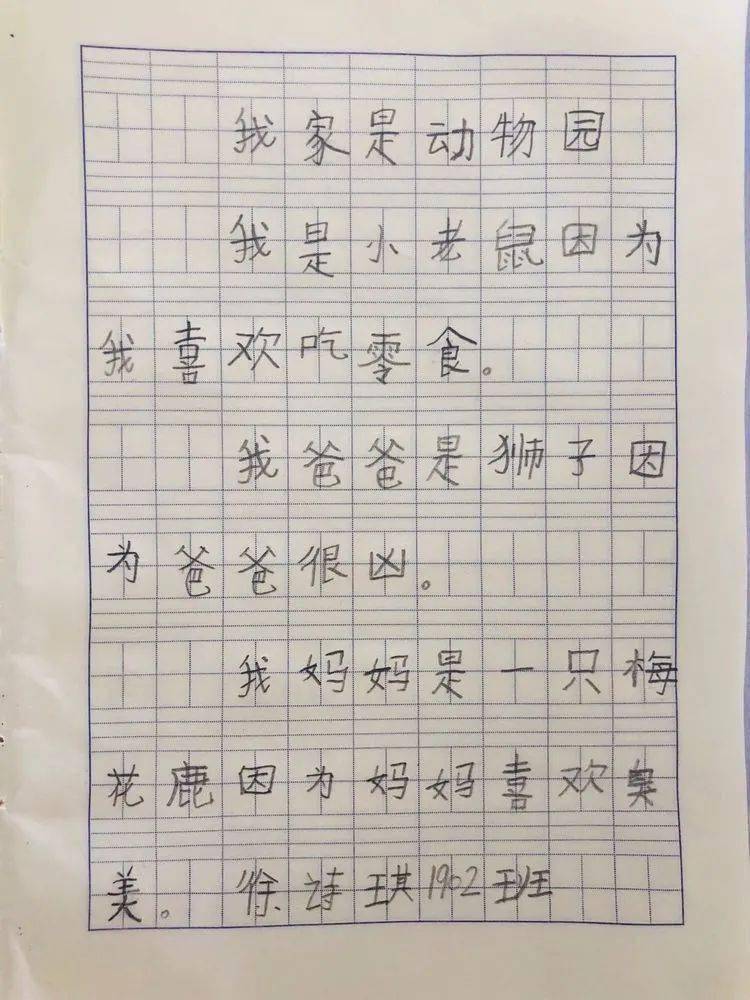 我家是动物园
我是小老鼠因为
我喜欢吃零食。
我爸爸是狮子因
为爸爸很凶。
我妈妈是一只梅
花鹿因为妈妈喜欢臭
美。徐诗琪1902班